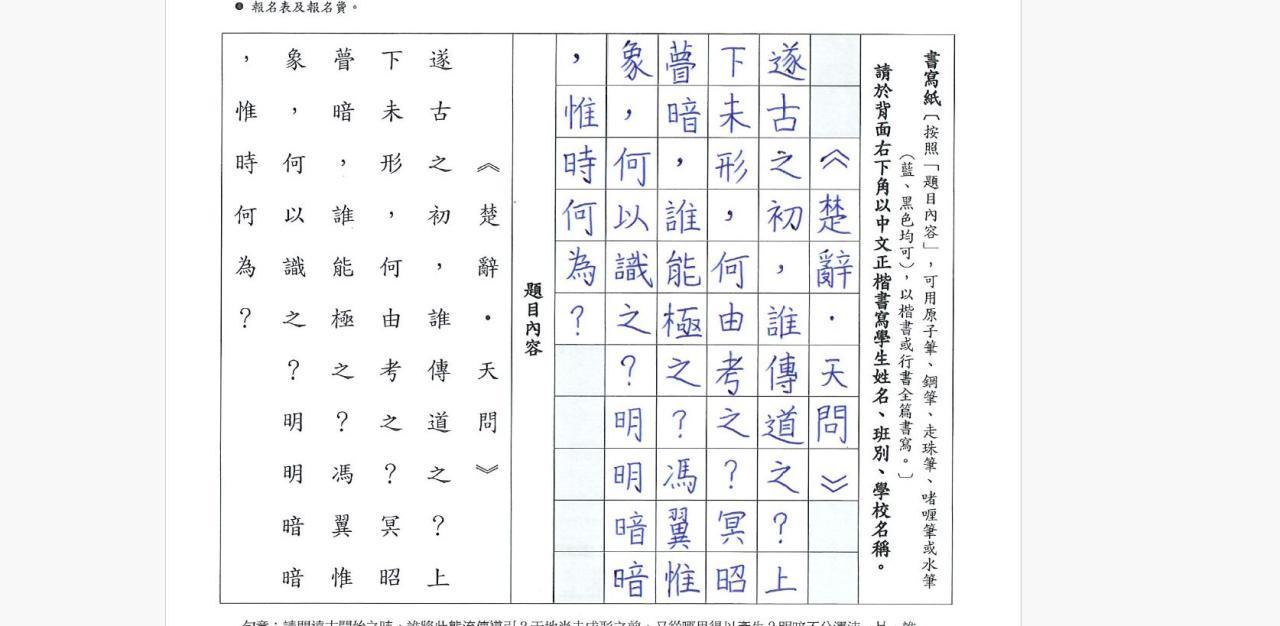 ●報名表及報名費。
書寫紙〔按照「題目內容」，可用原子筆、鋼筆、走珠筆、啫喱筆或水筆
（藍、黑色均可），以楷書或行書全篇書寫。〕
請於背面右下角以中文正楷書寫學生姓名、班別、學校名稱。
《楚辭·天問》
遂古之初，誰傳道之？上
下未形，何由考之？冥昭
瞢暗，誰能極之？馮翼惟
象，何以識之？明明暗暗
，惟時何為？
題目內容
《楚辭·天問》
遂古之初，誰傳道之？上
下未形，何由考之？冥昭
瞢暗，誰能極之？馮翼惟
象，何以識之？明明暗暗
，惟時何為？